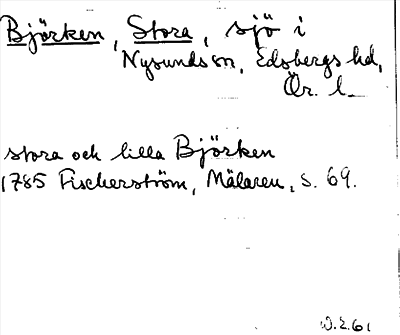 Björken, Stora, sjö i
Nysunds sn, Edsbergs hd,
Ör. l.
stora och lilla Björken
1785 Fischerström, Mälaren, s. 69.
W.E.61